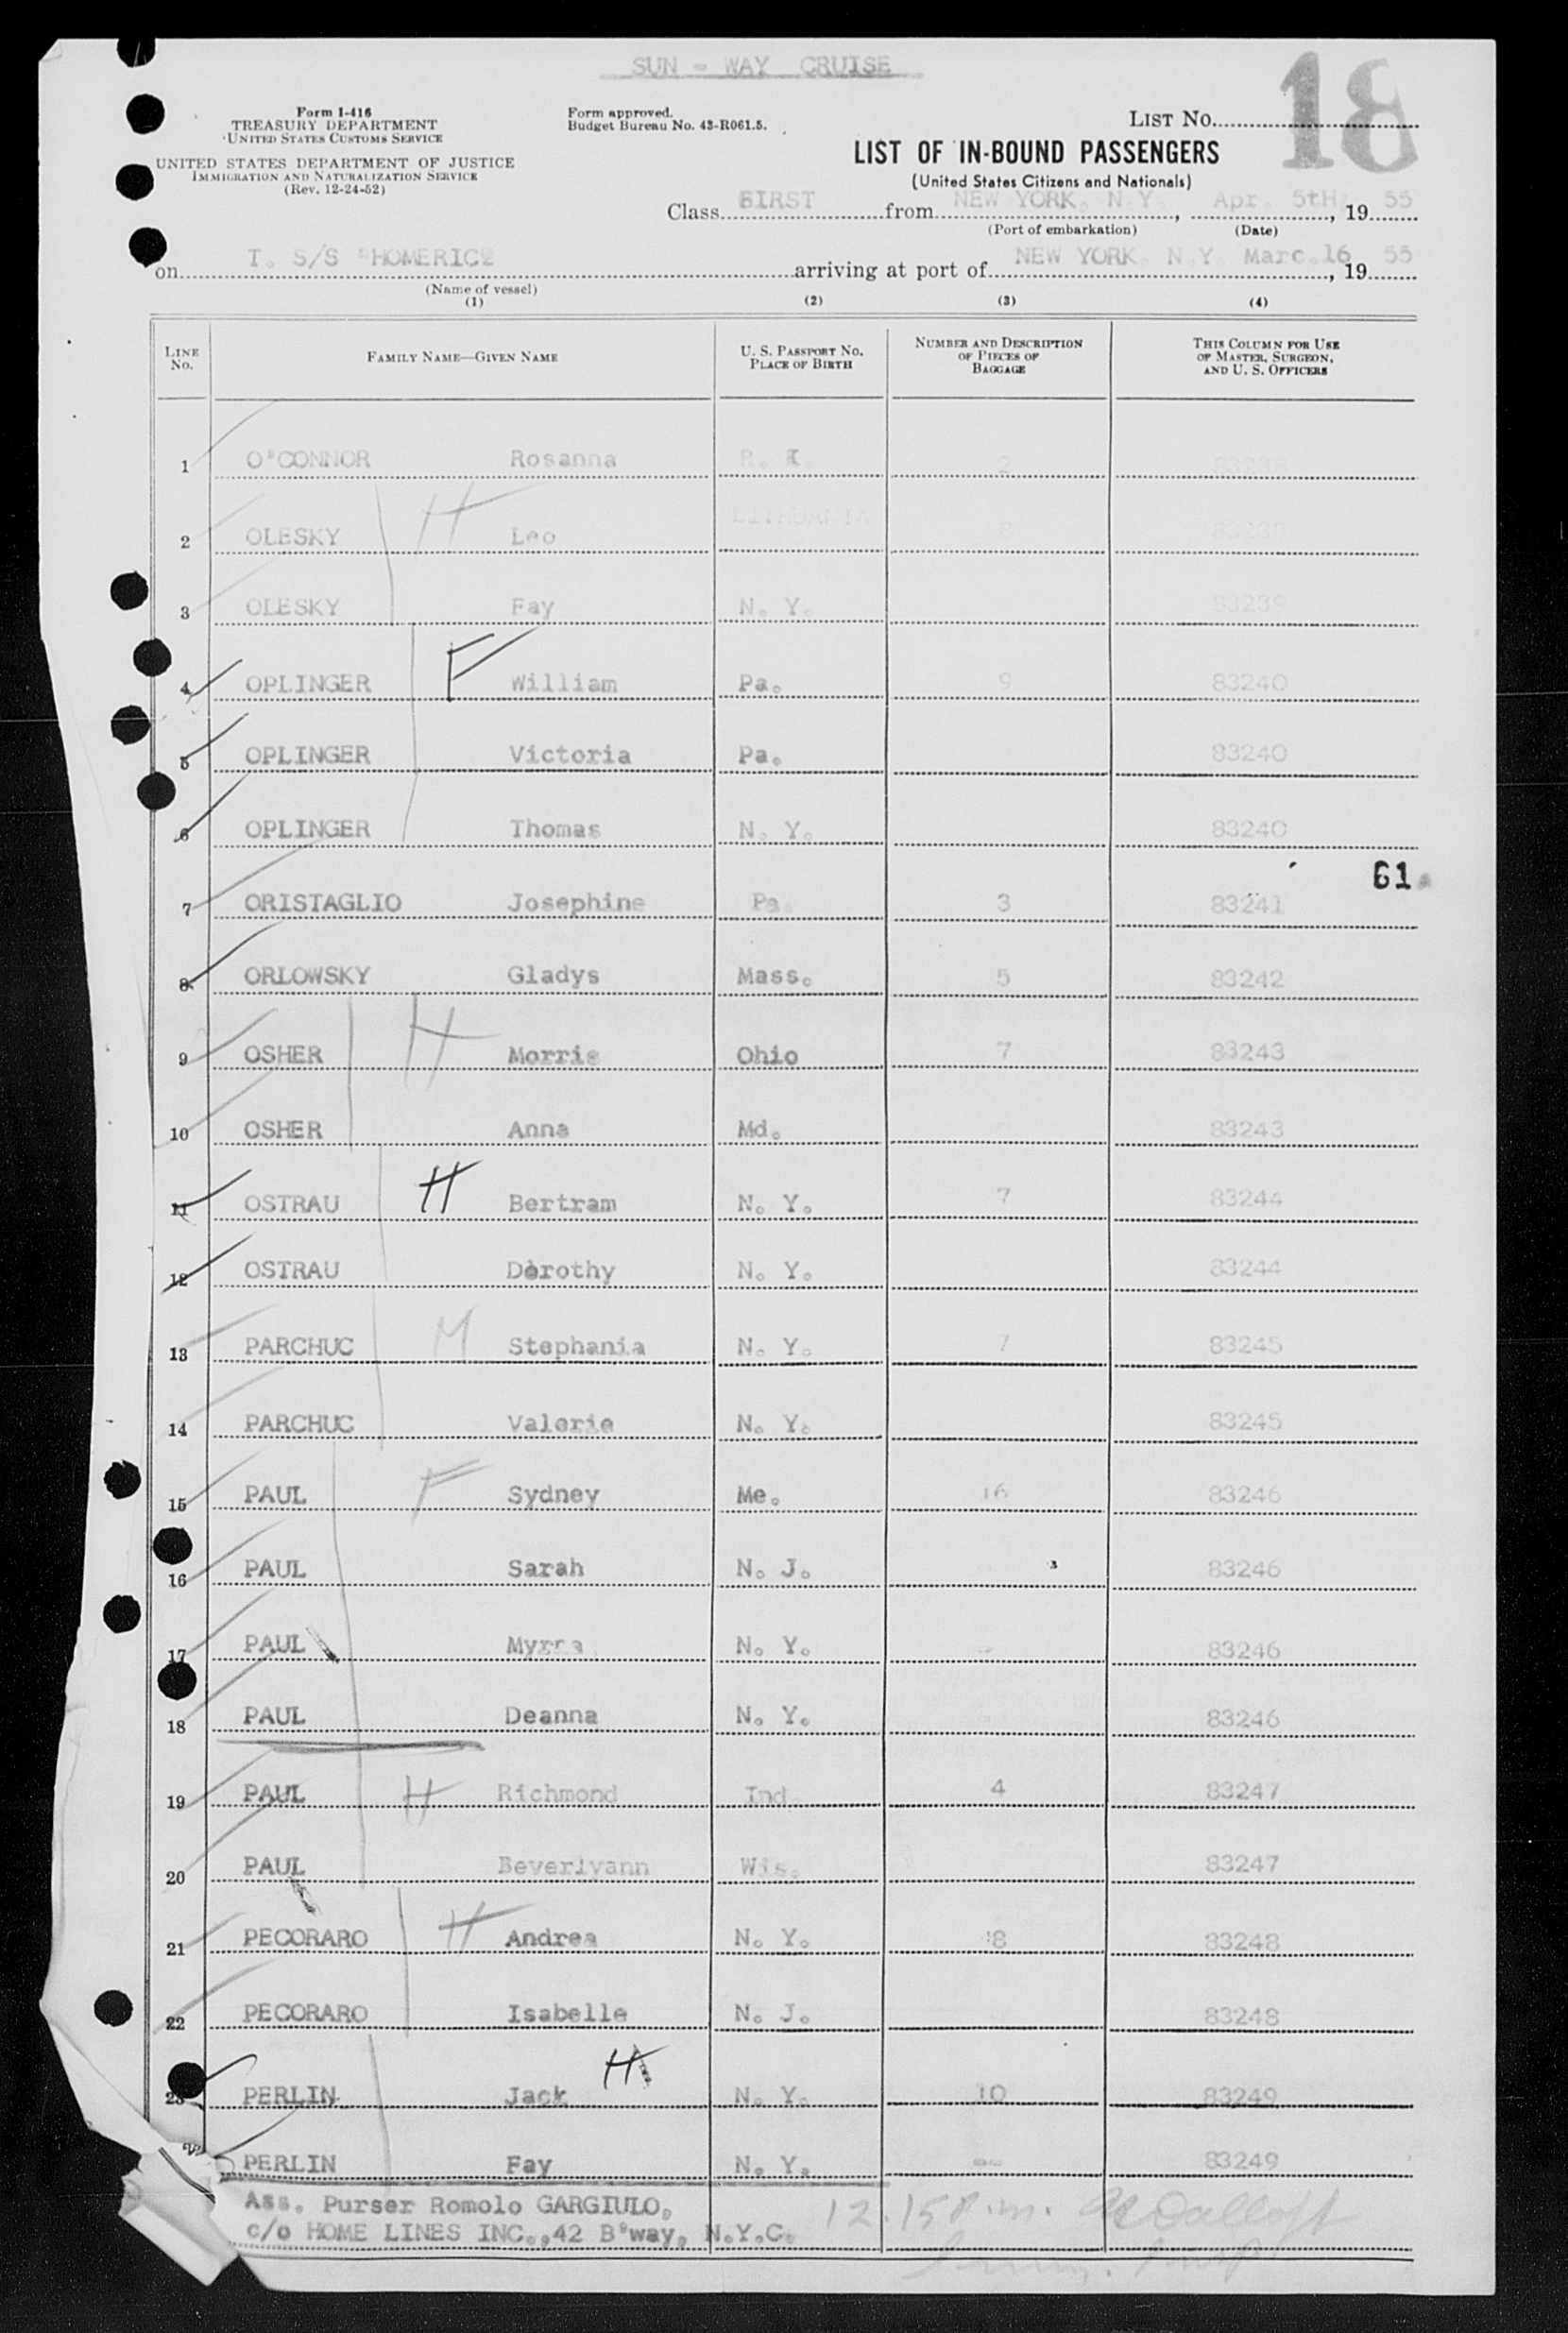 SUN - WAY CRUISE
18
Form I-416
TREASURY DEPARTMENT
UNITED STATES CUSTOMS SERVICE
UNITED STATES DEPARTMENT OF JUSTICE
IMMIGRATION AND NATURALIZATION SERVICE
(Rev. 12-24-52)
Form approved.
Budget Bureau No. 43-R061.5.
LIST NO.
LIST OF IN-BOUND PASSENGERS
(United States Citizens and Nationals)
Class FIRST from NEW YORK, N.Y., Apr. 5tH, 19 55
(Port of embarkation) (Date)
on T. S/S "HOMERIC" arriving at port of NEW YORK, N.Y. Marc.16, 19 55
(Name of vessel)
(1) (2) (3) (4)
LINE NO. FAMILY NAME—GIVEN NAME U. S. PASSPORT NO. PLACE OF BIRTH NUMBER AND DESCRIPTION OF PIECES OF BAGGAGE THIS COLUMN FOR USE OF MASTER, SURGEON, AND U. S. OFFICERS
1 O'CONNOR Rosanna R. I. 2
2 OLESKY H Leo LITHUANIA
3 OLESKY Fay N. Y. 83239
4 OPLINGER F William Pa. 9 83240
5 OPLINGER Victoria Pa. 83240
6 OPLINGER Thomas N. Y. 83240
61
7 ORISTAGLIO Josephine Pa. 3 83241
8 ORLOWSKY Gladys Mass. 5 83242
9 OSHER H Morris Ohio 7 83243
10 OSHER Anna Md. 83243
11 OSTRAU H Bertram N. Y. 7 83244
12 OSTRAU Dorothy N. Y. 83244
13 PARCHUC M Stephania N. Y. 7 83245
14 PARCHUC Valerie N. Y. 83245
15 PAUL F Sydney Me. 16 83246
16 PAUL Sarah N. J. 83246
17 PAUL Myrna N. Y. 83246
18 PAUL Deanna N. Y. 83246
19 PAUL H Richmond Ind. 4 83247
20 PAUL Beverlyann Wis. 83247
21 PECORARO H Andrea N. Y. 8 83248
22 PECORARO Isabelle N. J. 83248
23 PERLIN Jack H N. Y. 10 83249
PERLIN Fay N. Y. 83249
Ass. Purser Romolo GARGIULO,
c/o HOME LINES INC.,42 B'way, N.Y.C.
12.15 P.m.